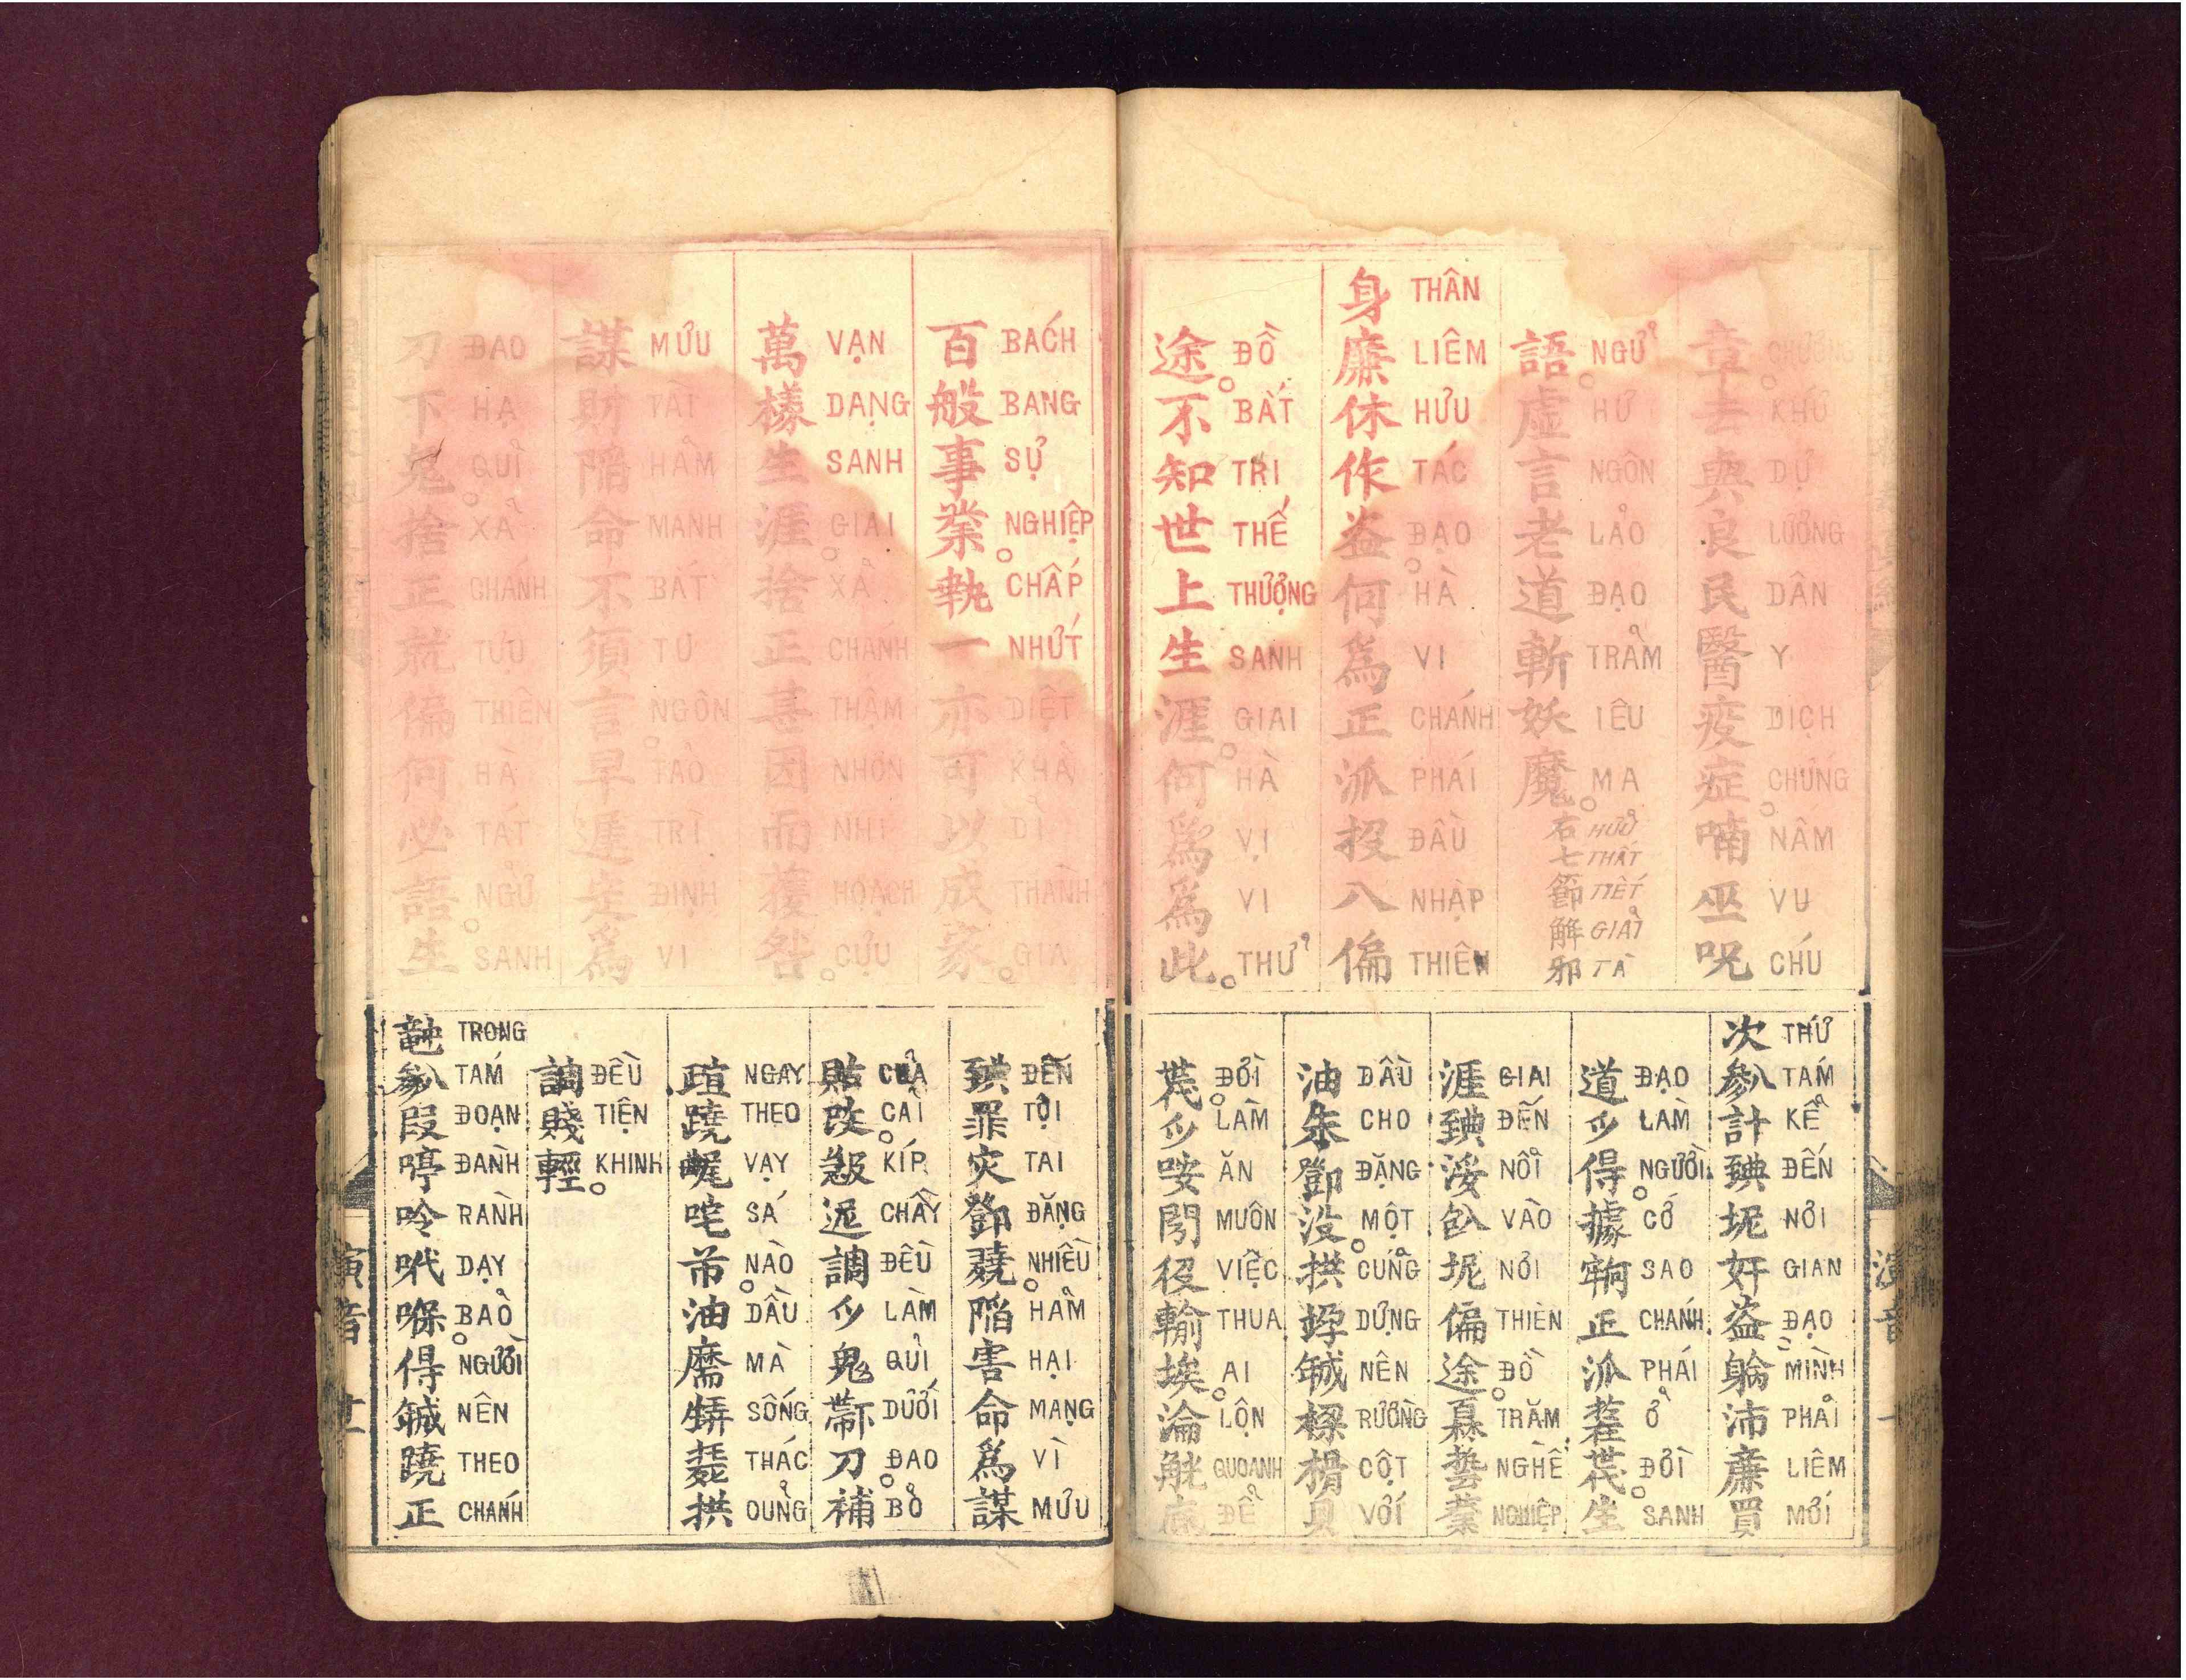 章。去與良民醫疫症。喃巫呪
CHƯƠNG KHỨ DỰ LƯƠNG DÂN Y DỊCH CHỨNG NÂM VU CHÚ
語。虛言老道斬妖魔。右七節解邪
NGỬ HƯ NGÔN LÃO ĐẠO TRẢM IÊU MA HỮU THẤT TIẾT GIẢI TÀ
身廉休作盗。何爲正派投入偏
THÂN LIÊM HƯU TÁC ĐẠO HÀ VI CHÁNH PHÁI ĐẦU NHẬP THIÊN
途。不知世上生涯。何爲爲此。
ĐỒ BẤT TRI THẾ THƯỢNG SANH GIAI HÀ VỊ VI THỬ
次𠔭計𦤾坭奸盗躺沛廉買
THỨ TÁM KỂ ĐẾN NƠI GIAN ĐẠO MÌNH PHẢI LIÊM MỚI
道𫜵得。據正派世。生
ĐẠO LÀM NGƯỜI CỚ SAO CHÁNH PHÁI Ở ĐỜI SANH
涯𦤾浽𠓨坭偏途。𤾓藝業
GIAI ĐẾN NỖI VÀO NƠI THIÊN ĐỒ TRĂM NGHỀ NGHIỆP
油朱鄧没。拱𥩯𨧟樑榾貝
DẦU CHO ĐẶNG MỘT CŨNG DỰNG NÊN RƯỜNG CỘT VỚI
𠁀。𫜵咹閍役輸埃。淪觥底
ĐỜI LÀM ĂN MUÔN VIỆC THUA AI LỘN QUOANH ĐỂ
百般事業。執一亦可以成家。
BÁCH BANG SỰ NGHIỆP CHẤP NHỨT DIỆT KHẢ DĨ THÀNH GIA
萬樣生涯。捨正甚因而獲咎。
VẠN DẠNG SANH GIAI XẢ CHÁNH THẬM NHƠN NHI HOẠCH CỬU
謀財陷命不須言。早遲定爲
MƯU TÀI HẢM MẠNH BẤT TU NGÔN TẢO TRÌ ĐỊNH VI
刀下鬼。捨正就偏何必語。生
ĐAO HẠ QUỈ XẢ CHÁNH TỰU THIÊN HÀ TẤT NGỮ SANH
𦤾罪灾鄧𡗊。陷害命爲謀
ĐẾN TỘI TAI ĐẶNG NHIỀU HẢM HẠI MẠNG VÌ MƯU
貼改。調𫜵鬼𠁑刀。補
CỦA CẢI KÍP CHẦY ĐỀU LÀM QUỈ DƯỚI ĐAO BỎ
𣦍蹺咤芾。油麻𤯩拱
NGAY THEO VẠY SÁ NÀO DẦU MÀ SỐNG THÁC CŨNG
調賤輕。
ĐỀU TIỆN KHINH
𥪞𠔭段停呤𠰺𠸒。得𨧟蹺正
TRONG TÁM ĐOẠN ĐÀNH RÀNH DẠY BẢO NGƯỜI NÊN THEO CHÁNH
演音